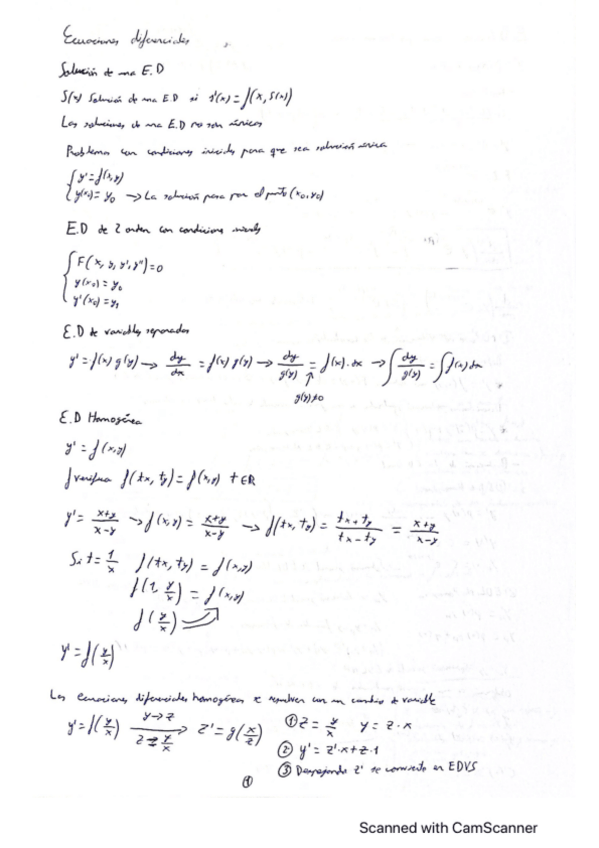 Ecuaciones diferenciales
Solución de una E.D
S(x) Solución de una E.D si s'(x) = f(x, s(x))
Las soluciones de una E.D no son únicas
Problemas con condiciones iniciales para que sea solución única
y' = f(x,y)
y(x₀) = y₀ → La solución pasa por el punto (x₀, y₀)
E.D de 2 orden con condiciones
F(x, y, y', y'') = 0
y(x₀) = y₀
y'(x₀) = y₁
E.D de variables separadas
y' = f(x) g(y) → dy/dx = f(x) g(y) → dy/g(y) = f(x)·dx → ∫ dy/g(y) = ∫ f(x) dx
g(y)≠0
E.D Homogénea
y' = f(x,y)
f verifica f(tx, ty) = f(x,y) t∈R
y' = x+y/x-y → f(x,y) = x+y/x-y → f(tx, ty) = tx+ty/tx-ty = x+y/x-y
Si t = 1/x f(tx, ty) = f(x,y)
f(1, y/x) = f(x,y)
f(y/x)
y' = f(y/x)
Las Ecuaciones diferenciales homogéneas se resuelven con un cambio de variable
y' = f(y/x) y→z z=y/x → z' = g(x/z) ① z = y/x y = z·x
② y' = z'·x+z·1
③ Despejando z' se convierte en EDVS
①
Scanned with CamScanner